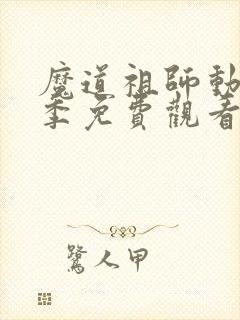 魔道祖師動
季免費觀看
鷺人甲